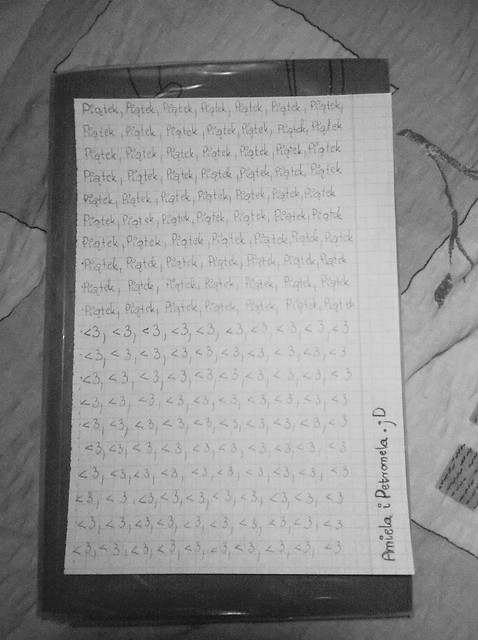 Piątek, Piątek, Piątek, Piątek, Piątek, Piątek, Piątek,
Piątek, Piątek, Piątek, Piątek, Piątek, Piątek, Piątek
Piątek, Piątek, Piątek, Piątek, Piątek, Piątek, Piątek
Piątek, Piątek, Piątek, Piątek, Piątek, Piątek, Piątek
Piątek, Piątek, Piątek, Piątek, Piątek, Piątek, Piątek
Piątek, Piątek, Piątek, Piątek, Piątek, Piątek, Piątek
Piątek, Piątek, Piątek, Piątek, Piątek, Piątek, Piątek
Piątek, Piątek, Piątek, Piątek, Piątek, Piątek, Piątek
Piątek, Piątek, Piątek, Piątek, Piątek, Piątek, Piątek
Piątek, Piątek, Piątek, Piątek, Piątek, Piątek, Piątek
<3, <3, <3, <3, <3, <3, <3, <3, <3, <3
<3, <3, <3, <3, <3, <3, <3, <3, <3, <3
<3, <3, <3, <3, <3, <3, <3, <3, <3, <3
<3, <3, <3, <3, <3, <3, <3, <3, <3, <3
<3, <3, <3, <3, <3, <3, <3, <3, <3, <3
<3, <3, <3, <3, <3, <3, <3, <3, <3, <3
<3, <3, <3, <3, <3, <3, <3, <3, <3, <3
<3, <3, <3, <3, <3, <3, <3, <3, <3, <3
<3, <3, <3, <3, <3, <3, <3, <3, <3, <3
<3, <3, <3, <3, <3, <3, <3, <3, <3, <3
Amiela i Petronela. ;D